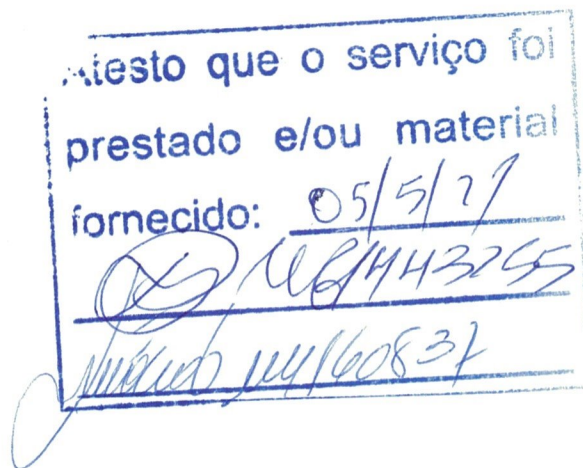 Atesto que o serviço foi
prestado e/ou material
fornecido: 05/5/21
443255
160837